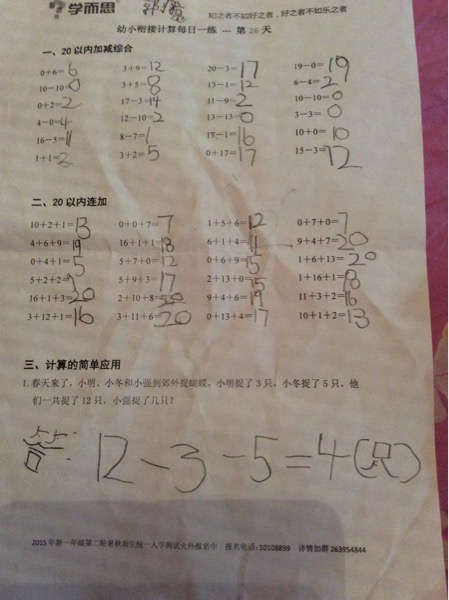 学而思
知之者不如好之者，好之者不如乐之者
幼小衔接计算每日一练 --- 第 26 天
一、20 以内加减综合
0+6=6 3+9=12 20-3=17 19-0=19
10-10=0 3+5=8 13-1=12 6-4=2
0+2=2 17-3=14 11-9=2 10-10=0
4-0=4 12-10=2 13-13=0 3-3=0
16-5=11 8-7=1 17-1=16 10+0=10
1+1=2 3+2=5 0+17=17 15-3=12
二、20 以内连加
10+2+1=13 0+0+7=7 1+5+6=12 0+7+0=7
4+6+9=19 16+1+1=18 6+1+4=11 9+4+7=20
0+4+1=5 5+7+0=12 0+6+9=15 1+6+13=20
5+2+2=9 5+9+3=17 2+13+0=15 1+16+1=18
16+1+3=20 2+10+8=20 9+4+6=19 11+3+2=16
3+12+1=16 3+11+6=20 0+13+4=17 10+1+2=13
三、计算的简单应用
1. 春天来了，小明、小冬和小强到郊外捉蝴蝶，小明捉了 3 只，小冬捉了 5 只，他
们一共捉了 12 只，小强捉了几只？
答：12-3-5=4(只)
2015 年新一年级第二轮暑秋新生统一入学测试火热报名中 报名电话：10108899 详情加群 263954844